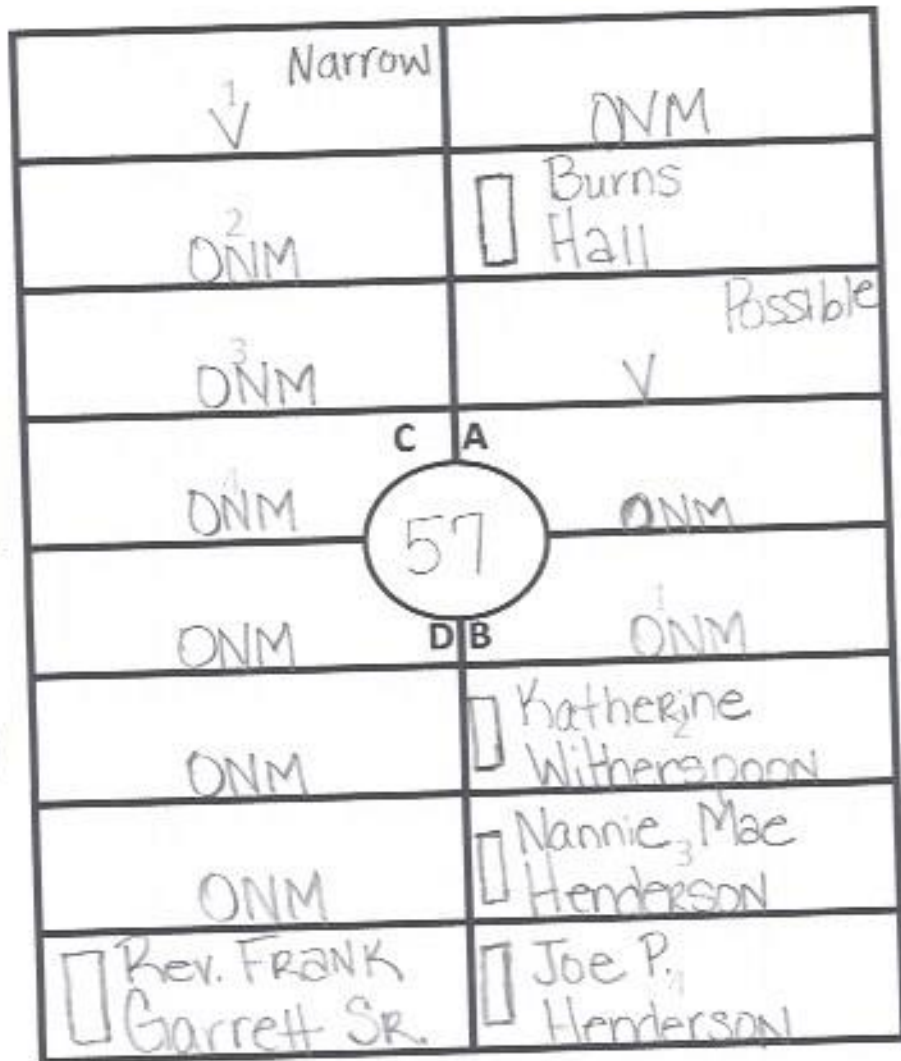 Narrow
1
V
ONM
2
ONM
Burns
Hall
3
ONM
Possible
V
C A
4
ONM
ONM
57
D B
ONM
1
ONM
ONM
Katherine
2
Witherspoon
ONM
Nannie Mae
3
Henderson
Rev. FRANK
Garrett SR.
Joe P.
4
Henderson